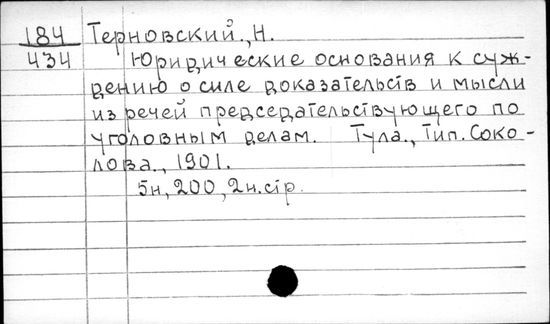 184 Терновский., Н.
434 Юридические основания к суж-
дению о силе доказательств и мысли
из речей председательствующего по
уголовным делам. Тула., Тип. Соко-
лова., 1901.
5н, 200, 2н. стр.